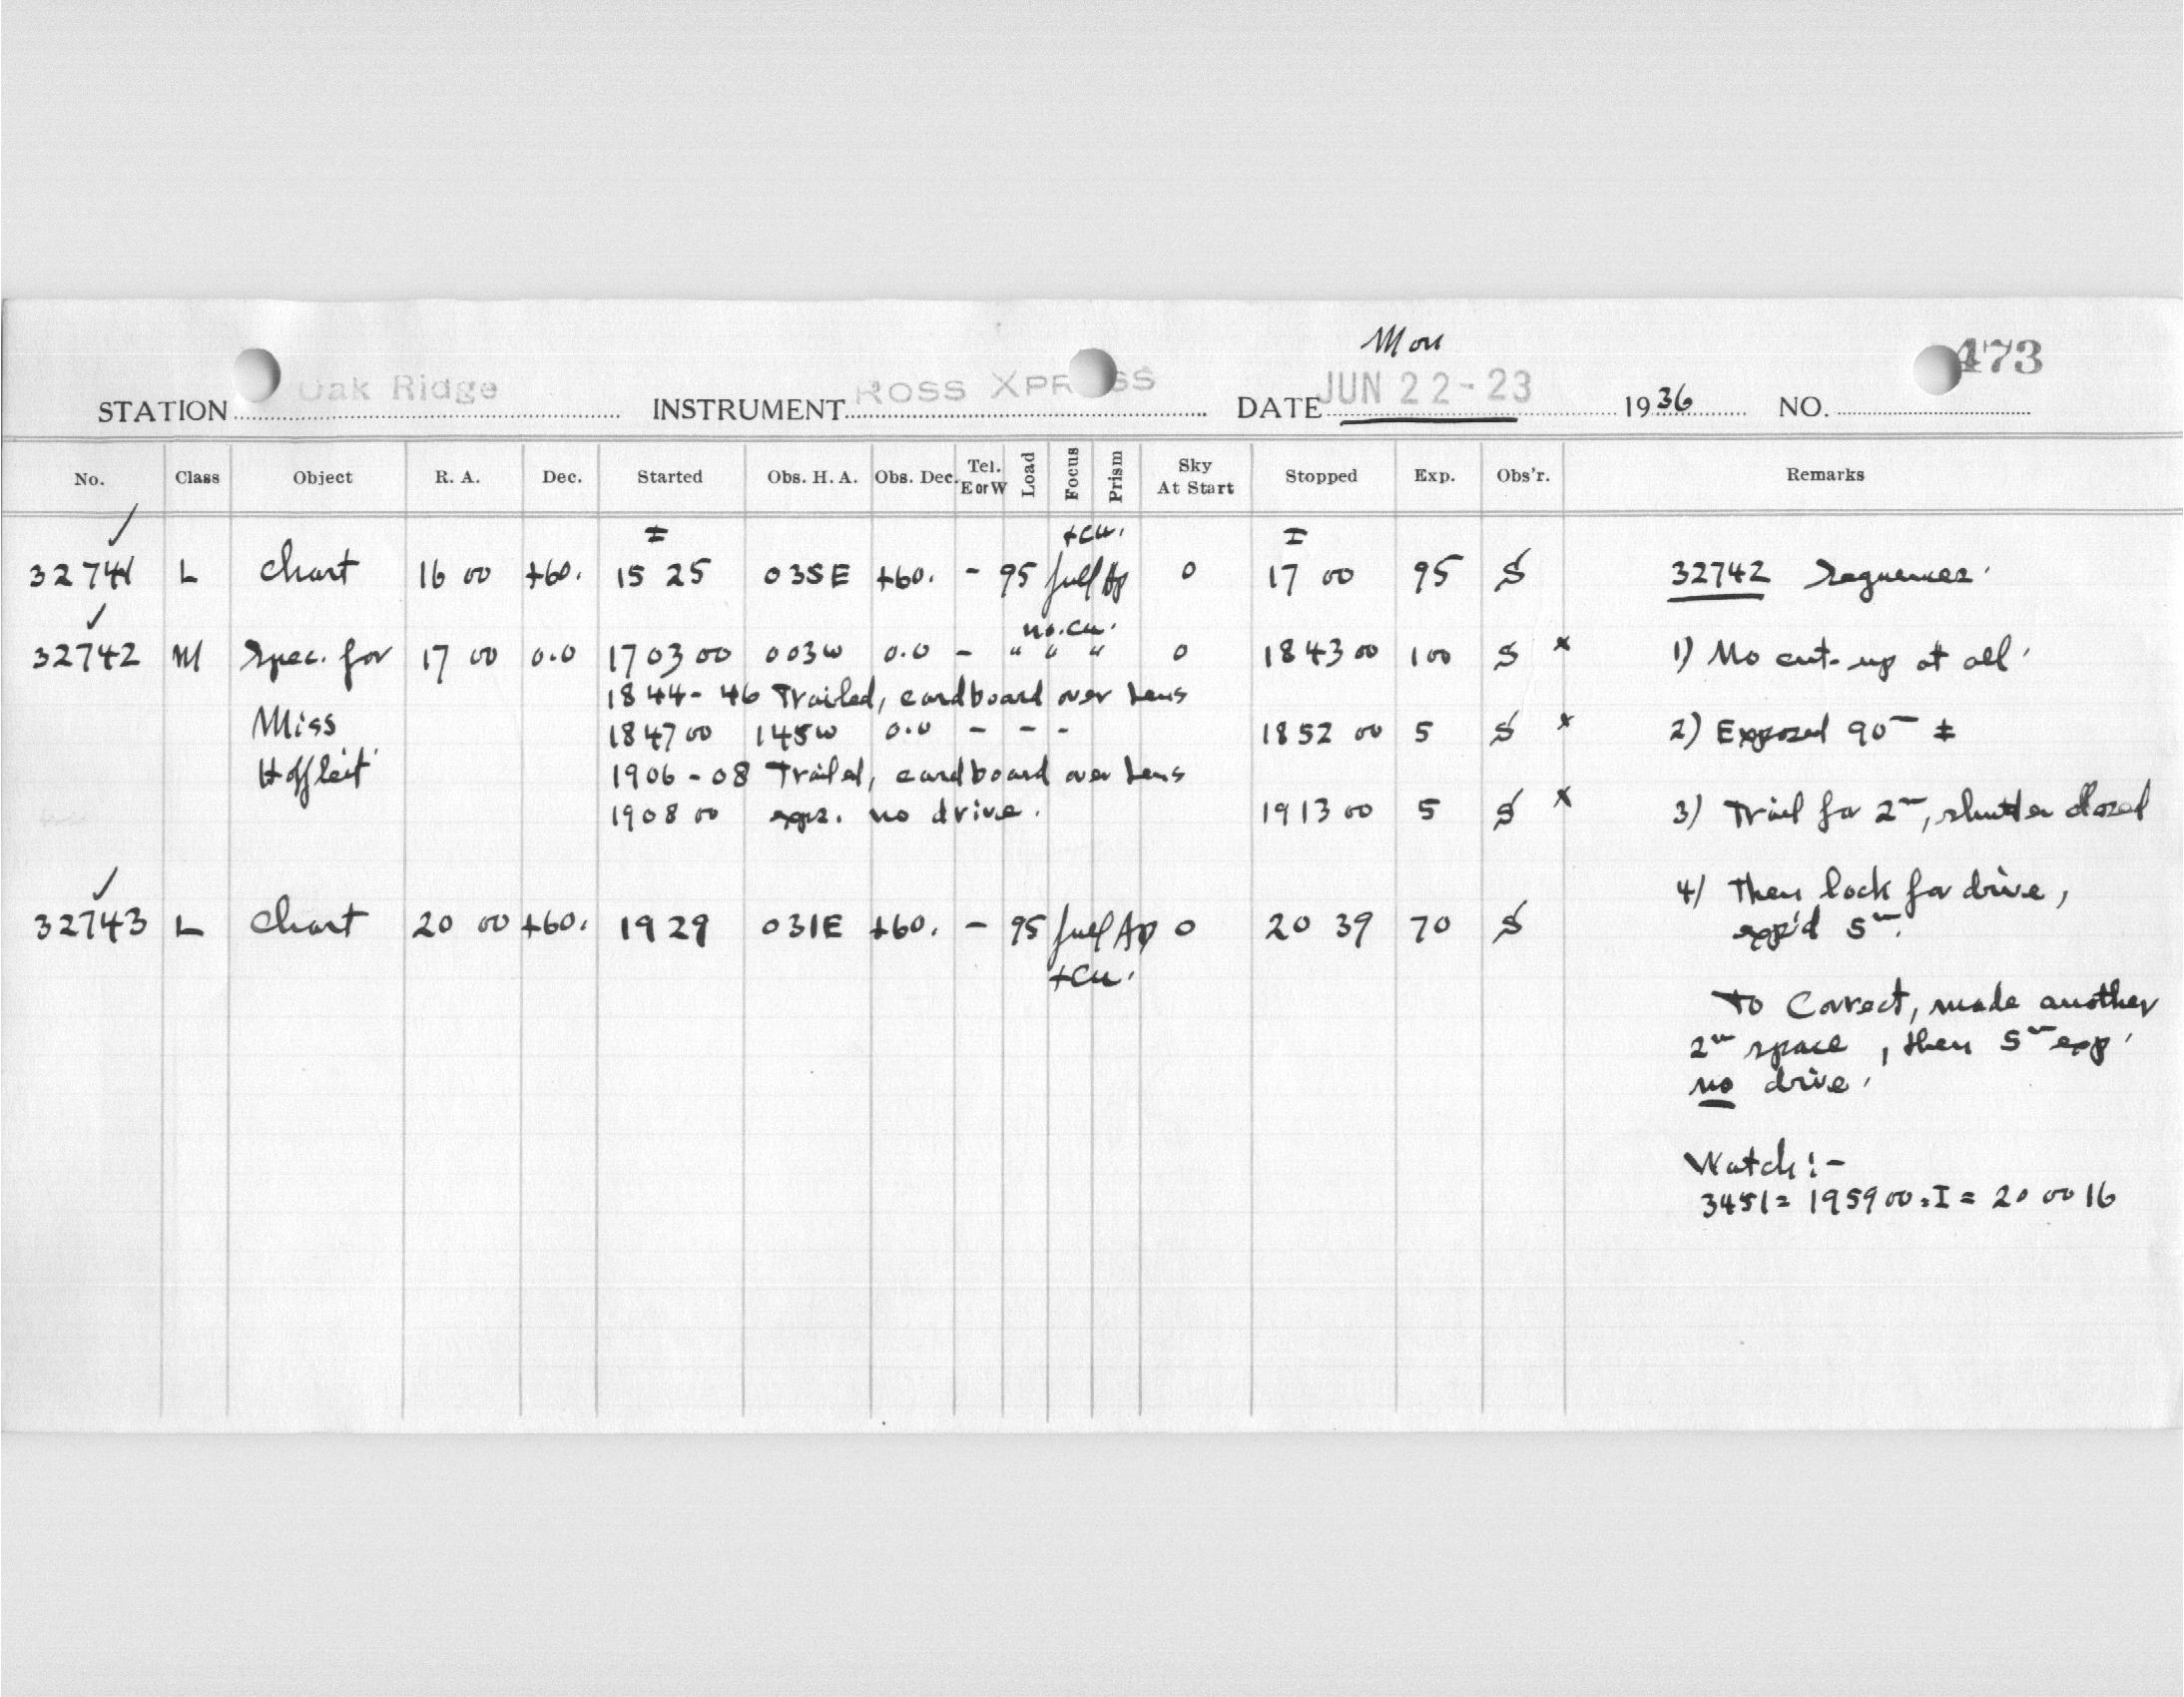 Mon
473
STATION Oak Ridge INSTRUMENT ROSS XPRESS DATE JUN 22-23 1936 NO.
No. Class Object R. A. Dec. Started Obs. H. A. Obs. Dec. Tel. E or W Load Focus Prism Sky At Start Stopped Exp. Obs'r. Remarks
I +cu. I
32741 L Chart 16 00 +60. 15 25 035E +60. - 95 full Ap 0 17 00 95 S 32742 Sequence.
no.cu.
32742 M Spec. for 17 00 0.0 17 03 00 003W 0.0 - " " " 0 18 43 00 100 S x 1) No cut-up at all.
1844-46 Trailed, cardboard over Lens
Miss 18 47 00 145W 0.0 - - - 18 52 00 5 S x 2) Exposed 90m ±
Hoffleit 1906-08 Trailed, cardboard over Lens
1908 00 exps. no drive. 1913 00 5 S x 3) Trail for 2m, shutter closed
4) Then lock for drive,
32743 L Chart 20 00 +60. 19 29 031E +60. - 95 full Ap 0 20 39 70 S exp'd 5m.
+cu.
To Correct, made another
2m space, then 5m exp.
no drive.
Watch:-
3451= 19 59 00.I = 20 00 16